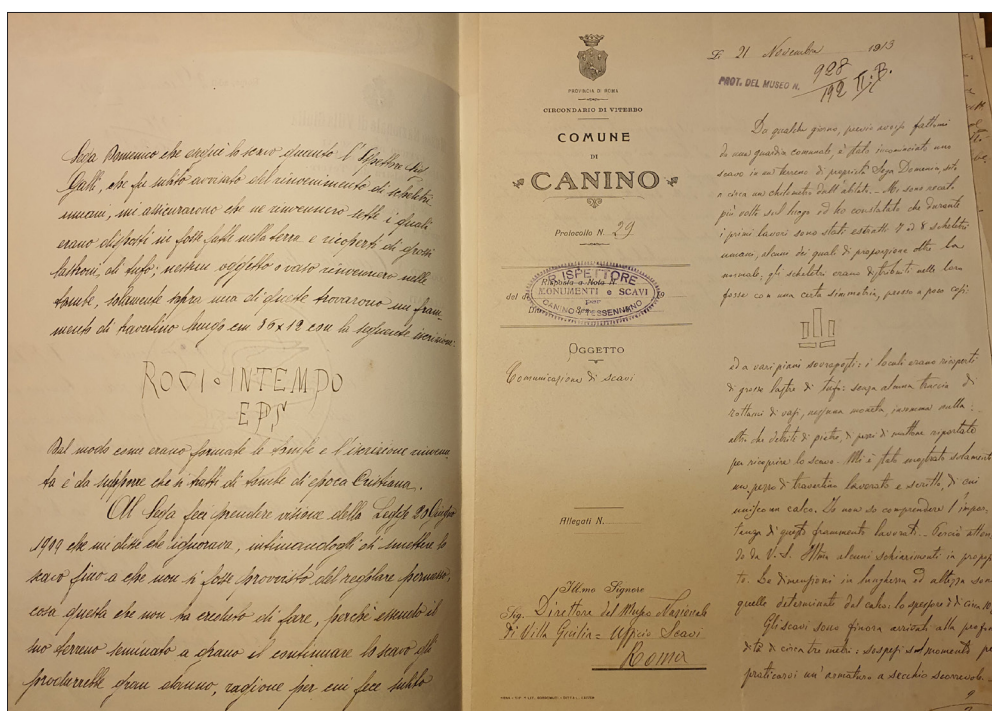 Sega Domenico che eseguì lo scavo quanto l'Ispettore Sig.
Galli, che fu subito avvisato del rinvenimento di scheletri
umani, mi assicurarono che ne rinvennero sette i quali
erano disposti in fosse fatte nella terra e ricoperti di grossi
lastroni di tufo; nessun oggetto o vaso rinvennero nelle
tombe, solamente sopra una di queste trovarono un fram-
mento di travertino lungo cm 35x12 con la seguente iscrizione:
ROGI·INTEMPO
EPS
Dal modo come erano formate le tombe e l'iscrizione rinvenu-
ta è da supporre che si tratti di tombe di epoca Cristiana.
Al Sega feci prendere visione della Legge 20 Giugno
1909 che mi disse che ignorava, intimandogli di smettere lo
scavo fino a che non si fosse provvisto del regolare permesso,
cosa questa che non ha creduto di fare, perchè essendo il
suo terreno seminato a grano il continuare lo scavo gli
produrrebbe gran danno, ragione per cui fece subito
PROVINCIA DI ROMA
CIRCONDARIO DI VITERBO
COMUNE
DI
CANINO
Protocollo N. 29
Risposta a Nota N.
R. ISPETTORE
MONUMENTI e SCAVI
per
CANINO e TESSENNANO
OGGETTO
Comunicazione di scavi
Allegati N.
Ill.mo Signore
Sig. Direttore del Museo Nazionale
di Villa Giulia = Ufficio Scavi
Roma
Lì 21 Novembre 1913
PROT. DEL MUSEO N. 928
192 II. B.
Da qualche giorno, previo avviso fattomi
da una guardia comunale, è stato incominciato uno
scavo in un terreno di proprietà Sega Domenico, sito
a circa un chilometro dall'abitato. - Mi sono recato
più volte sul luogo ed ho constatato che durante
i primi lavori sono stati estratti 7 a 8 scheletri
umani, alcuni dei quali di proporzione oltre la
normale; gli scheletri erano distribuiti nelle loro
fosse con una certa simmetria, presso a poco così:
ed a vari piani sovrapposti: i locali erano ricoperti
di grosse lastre di tufo: senza alcuna traccia di
rottami di vasi, nessuna moneta, insomma nulla:
altro che detriti di pietre, di pezzi di mattone riportato
per ricoprire lo scavo. Mi è stato mostrato solamente
un pezzo di travertino lavorato e scritto, di cui
unisco un calco. Io non so comprendere l'impor-
tanza di questo frammento lavorato. - Perciò atten-
do da V.S. Ill.ma alcuni schiarimenti in proposi-
to. Le dimensioni in lunghezza ed altezza sono
quelle determinate dal calco: lo spessore è di circa 10
Gli scavi sono finora arrivati alla profon-
dità di circa tre metri: sospesi sul momento per
praticarvi un'armatura a secchio scorrevole. -